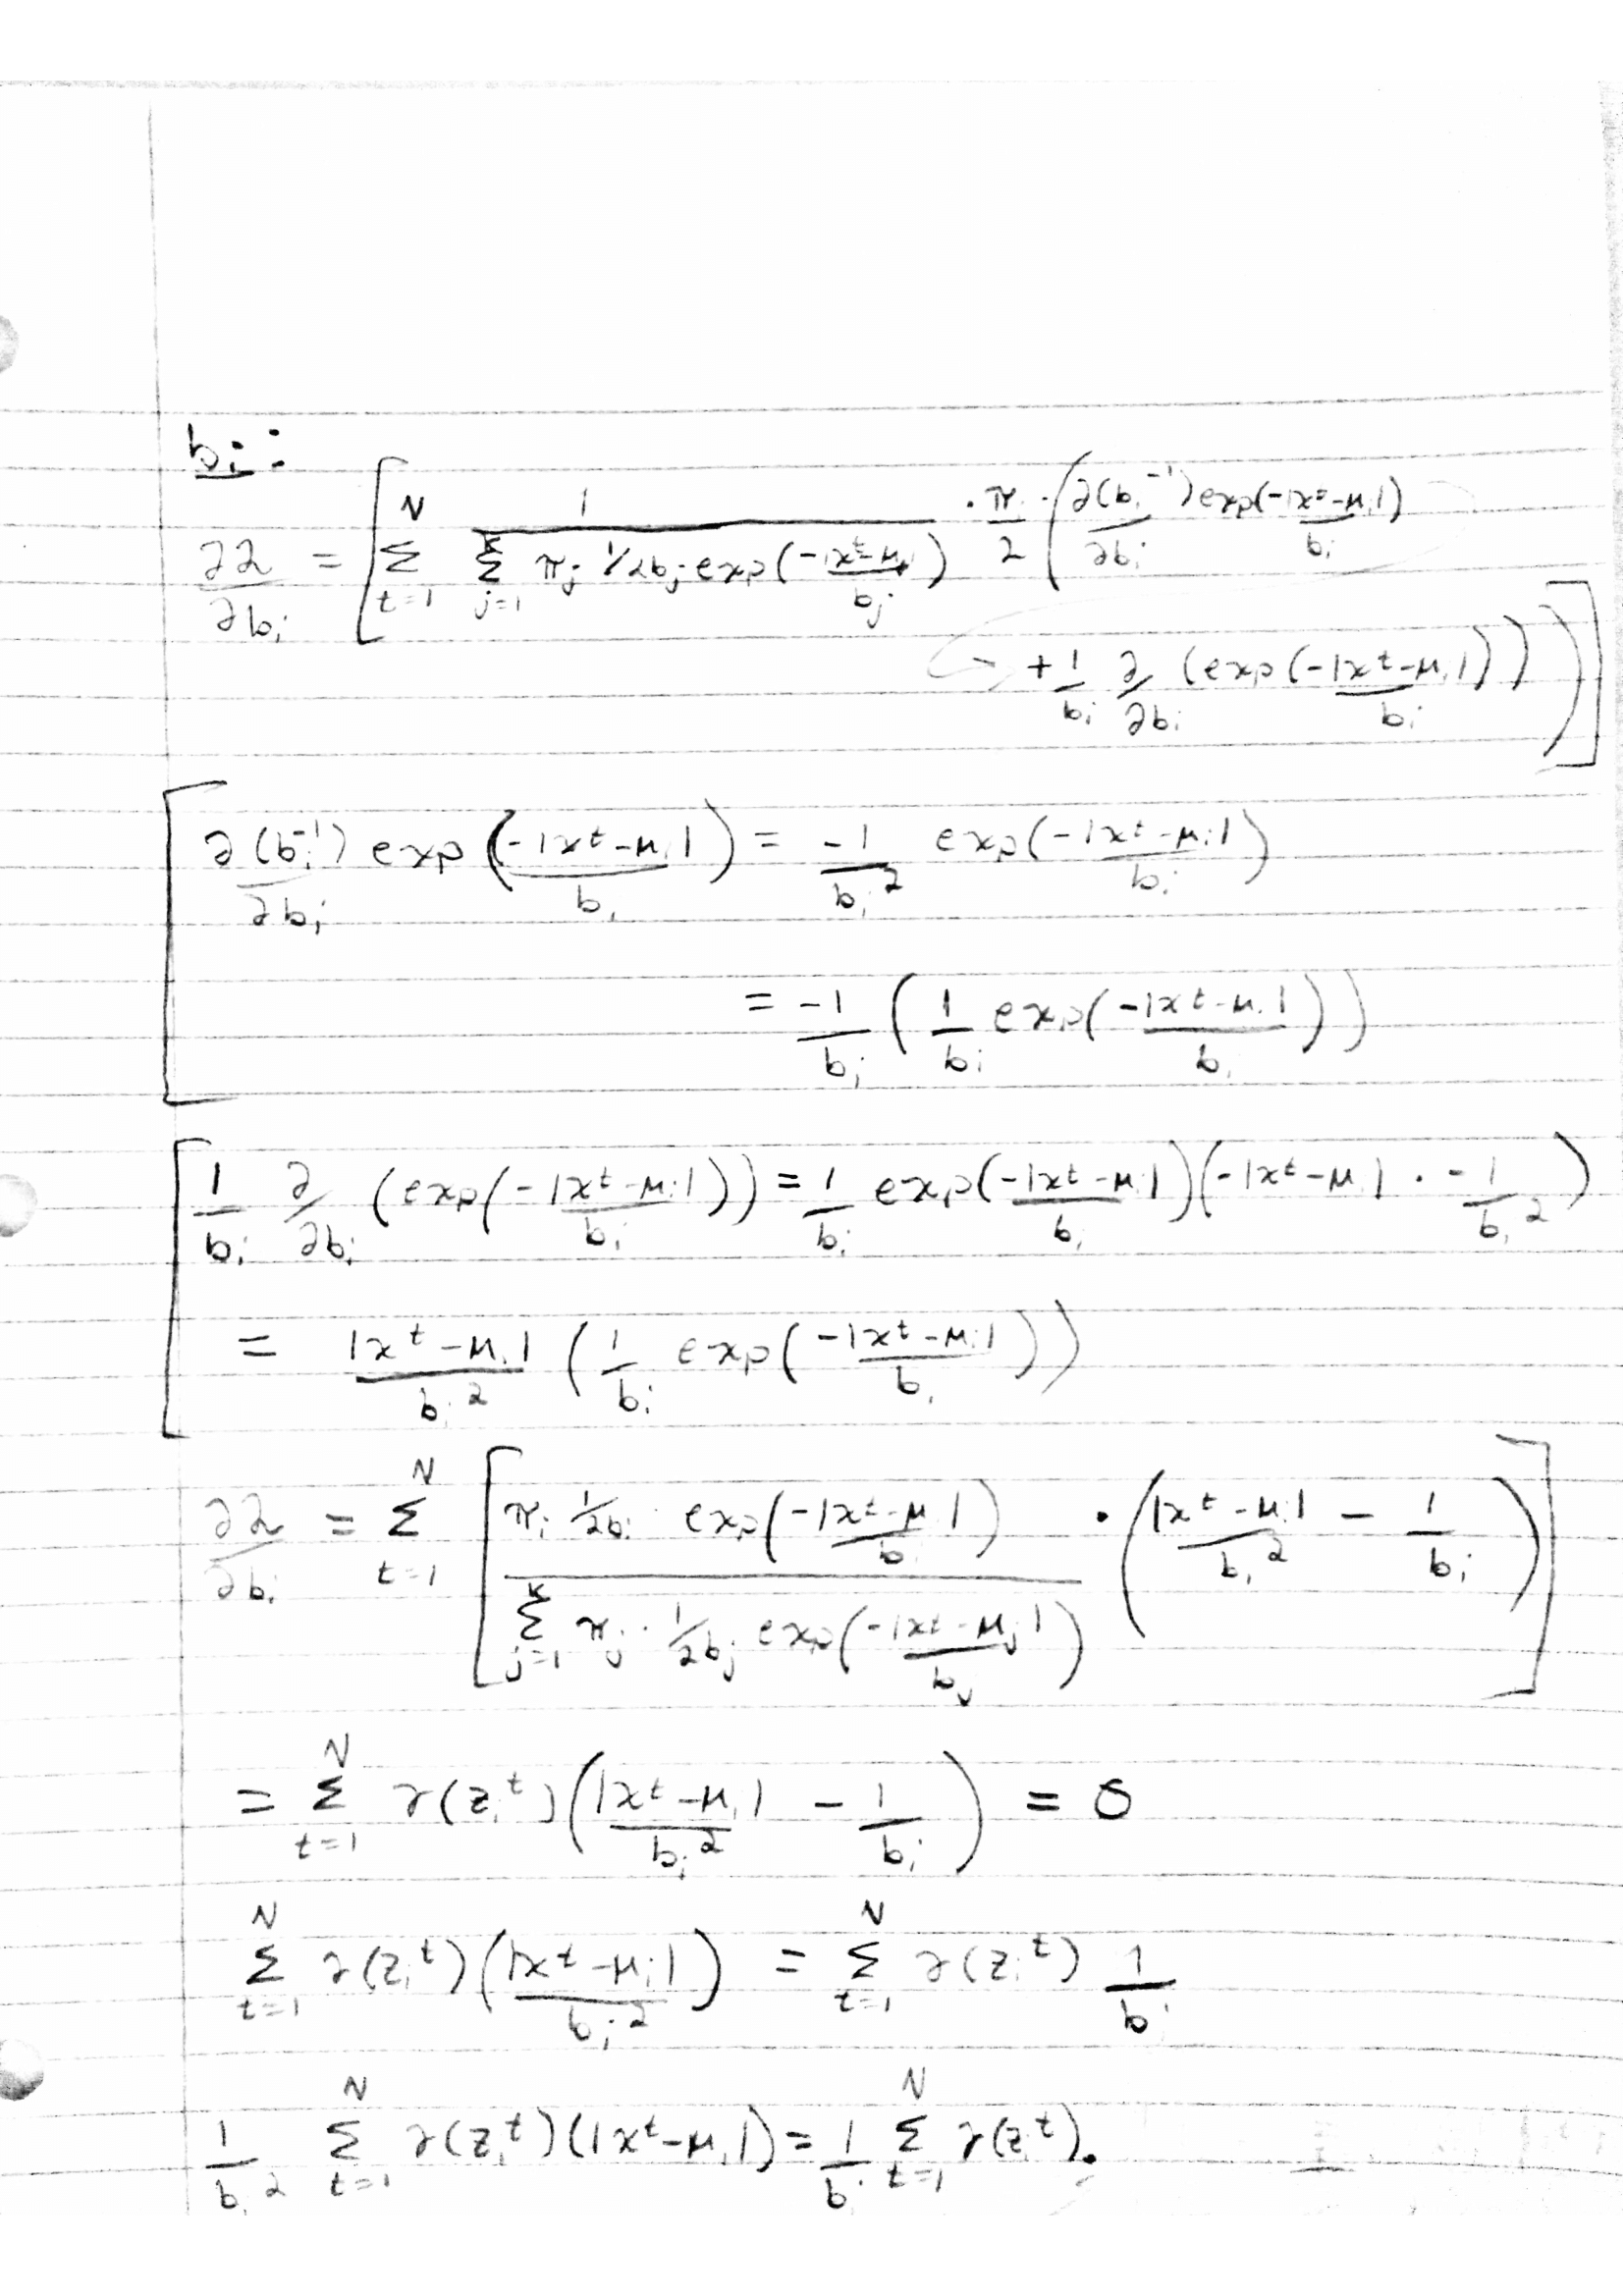 bᵢ :
∂ℒ/∂bᵢ = [ Σ_{t=1}^{N} 1/(Σ_{j=1}^{K} πⱼ 1/2bⱼ exp(-|xᵗ-μⱼ|/bⱼ)) · πᵢ/2 · ( ∂(bᵢ⁻¹)/∂bᵢ exp(-|xᵗ-μᵢ|/bᵢ)
+ 1/bᵢ ∂/∂bᵢ (exp(-|xᵗ-μᵢ|/bᵢ)) ) ]
[ ∂(bᵢ⁻¹)/∂bᵢ exp(-|xᵗ-μᵢ|/bᵢ) = -1/bᵢ² exp(-|xᵗ-μᵢ|/bᵢ)
= -1/bᵢ ( 1/bᵢ exp(-|xᵗ-μᵢ|/bᵢ) )
[ 1/bᵢ ∂/∂bᵢ (exp(-|xᵗ-μᵢ|/bᵢ)) = 1/bᵢ exp(-|xᵗ-μᵢ|/bᵢ) (-|xᵗ-μᵢ| · -1/bᵢ²)
= |xᵗ-μᵢ|/bᵢ² ( 1/bᵢ exp(-|xᵗ-μᵢ|/bᵢ) )
∂ℒ/∂bᵢ = Σ_{t=1}^{N} [ πᵢ 1/2bᵢ exp(-|xᵗ-μᵢ|/bᵢ) / Σ_{j=1}^{K} πⱼ · 1/2bⱼ exp(-|xᵗ-μⱼ|/bⱼ) · ( |xᵗ-μᵢ|/bᵢ² - 1/bᵢ ) ]
= Σ_{t=1}^{N} γ(zᵢᵗ) ( |xᵗ-μᵢ|/bᵢ² - 1/bᵢ ) = 0
Σ_{t=1}^{N} γ(zᵢᵗ) ( |xᵗ-μᵢ|/bᵢ² ) = Σ_{t=1}^{N} γ(zᵢᵗ) 1/bᵢ
1/bᵢ² Σ_{t=1}^{N} γ(zᵢᵗ)(|xᵗ-μᵢ|) = 1/bᵢ Σ_{t=1}^{N} γ(zᵢᵗ).